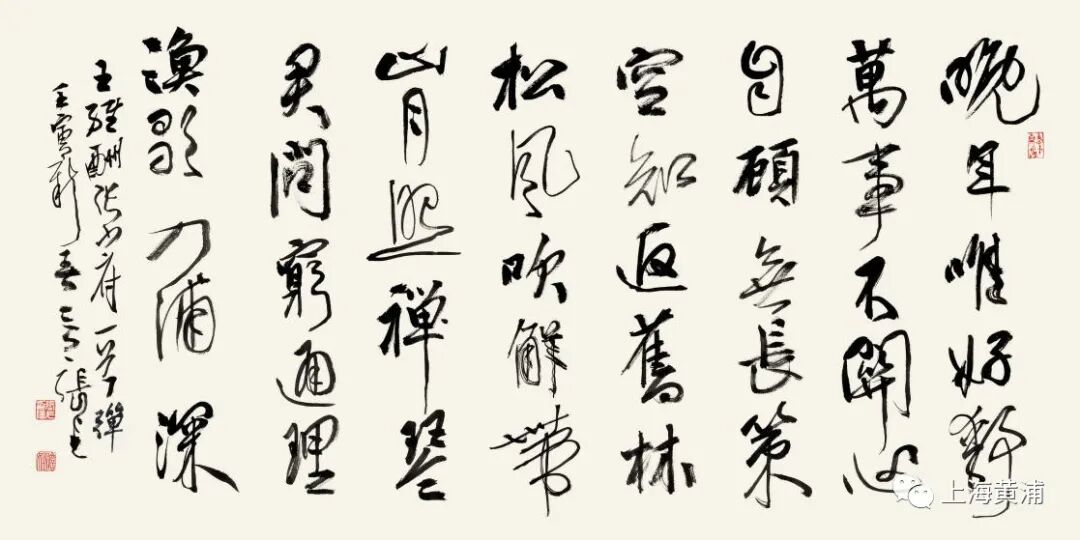 晚年唯好靜
萬事不關心
自顧無長策
空知返舊林
松風吹解帶
山月照禪琴
君問窮通理
漁歌入浦深
王維酬張少府一首彈
壬寅新春
上海黄浦